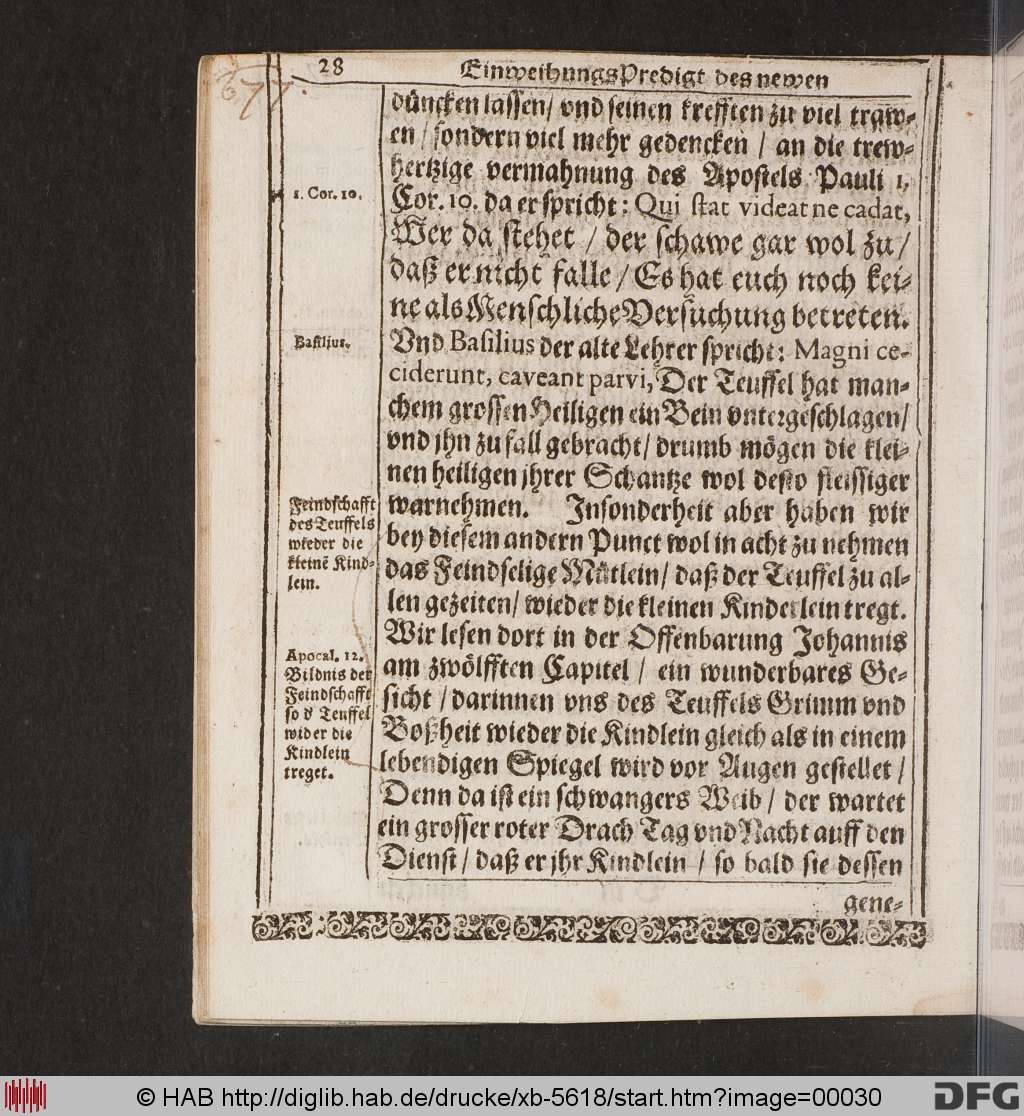 28
EinweihungsPredigt des newen
677.
düncken lassen/ vnd seinen krefften zu viel traw-
en/ sondern viel mehr gedencken / an die trew-
hertzige vermahnung des Apostels Pauli 1.
1. Cor. 10.
Cor. 10. da er spricht: Qui stat videat ne cadat,
Wer da stehet / der schawe gar wol zu /
daß er nicht falle / Es hat euch noch kei-
ne als Menschliche Versuchung betreten.
Basilius.
Vnd Basilius der alte Lehrer spricht: Magni ce-
ciderunt, caveant parvi, Der Teuffel hat man-
chem grossen Heiligen ein Bein vntergeschlagen/
vnd jhn zu fall gebracht/ drumb mögen die klei-
nen heiligen jhrer Schantze wol desto fleissiger
warnehmen. Insonderheit aber haben wir
bey diesem andern Punct wol in acht zu nehmen
das Feindselige Mütlein/ daß der Teuffel zu al-
len gezeiten/ wieder die kleinen Kinderlein tregt.
Feindschafft
des Teuffels
wieder die
kleinē Kind-
lein.
Wir lesen dort in der Offenbarung Johannis
am zwölfften Capitel / ein wunderbares Ge-
sicht / darinnen vns des Teuffels Grimm vnd
Boßheit wieder die Kindlein gleich als in einem
lebendigen Spiegel wird vor Augen gestellet /
Denn da ist ein schwangers Weib / der wartet
ein grosser roter Drach Tag vnd Nacht auff den
Dienst / daß er jhr Kindlein / so bald sie dessen
Apocal. 12.
Bildnis der
Feindschafft
so d' Teuffel
wider die
Kindlein
treget.
gene-
© HAB http://diglib.hab.de/drucke/xb-5618/start.htm?image=00030
DFG